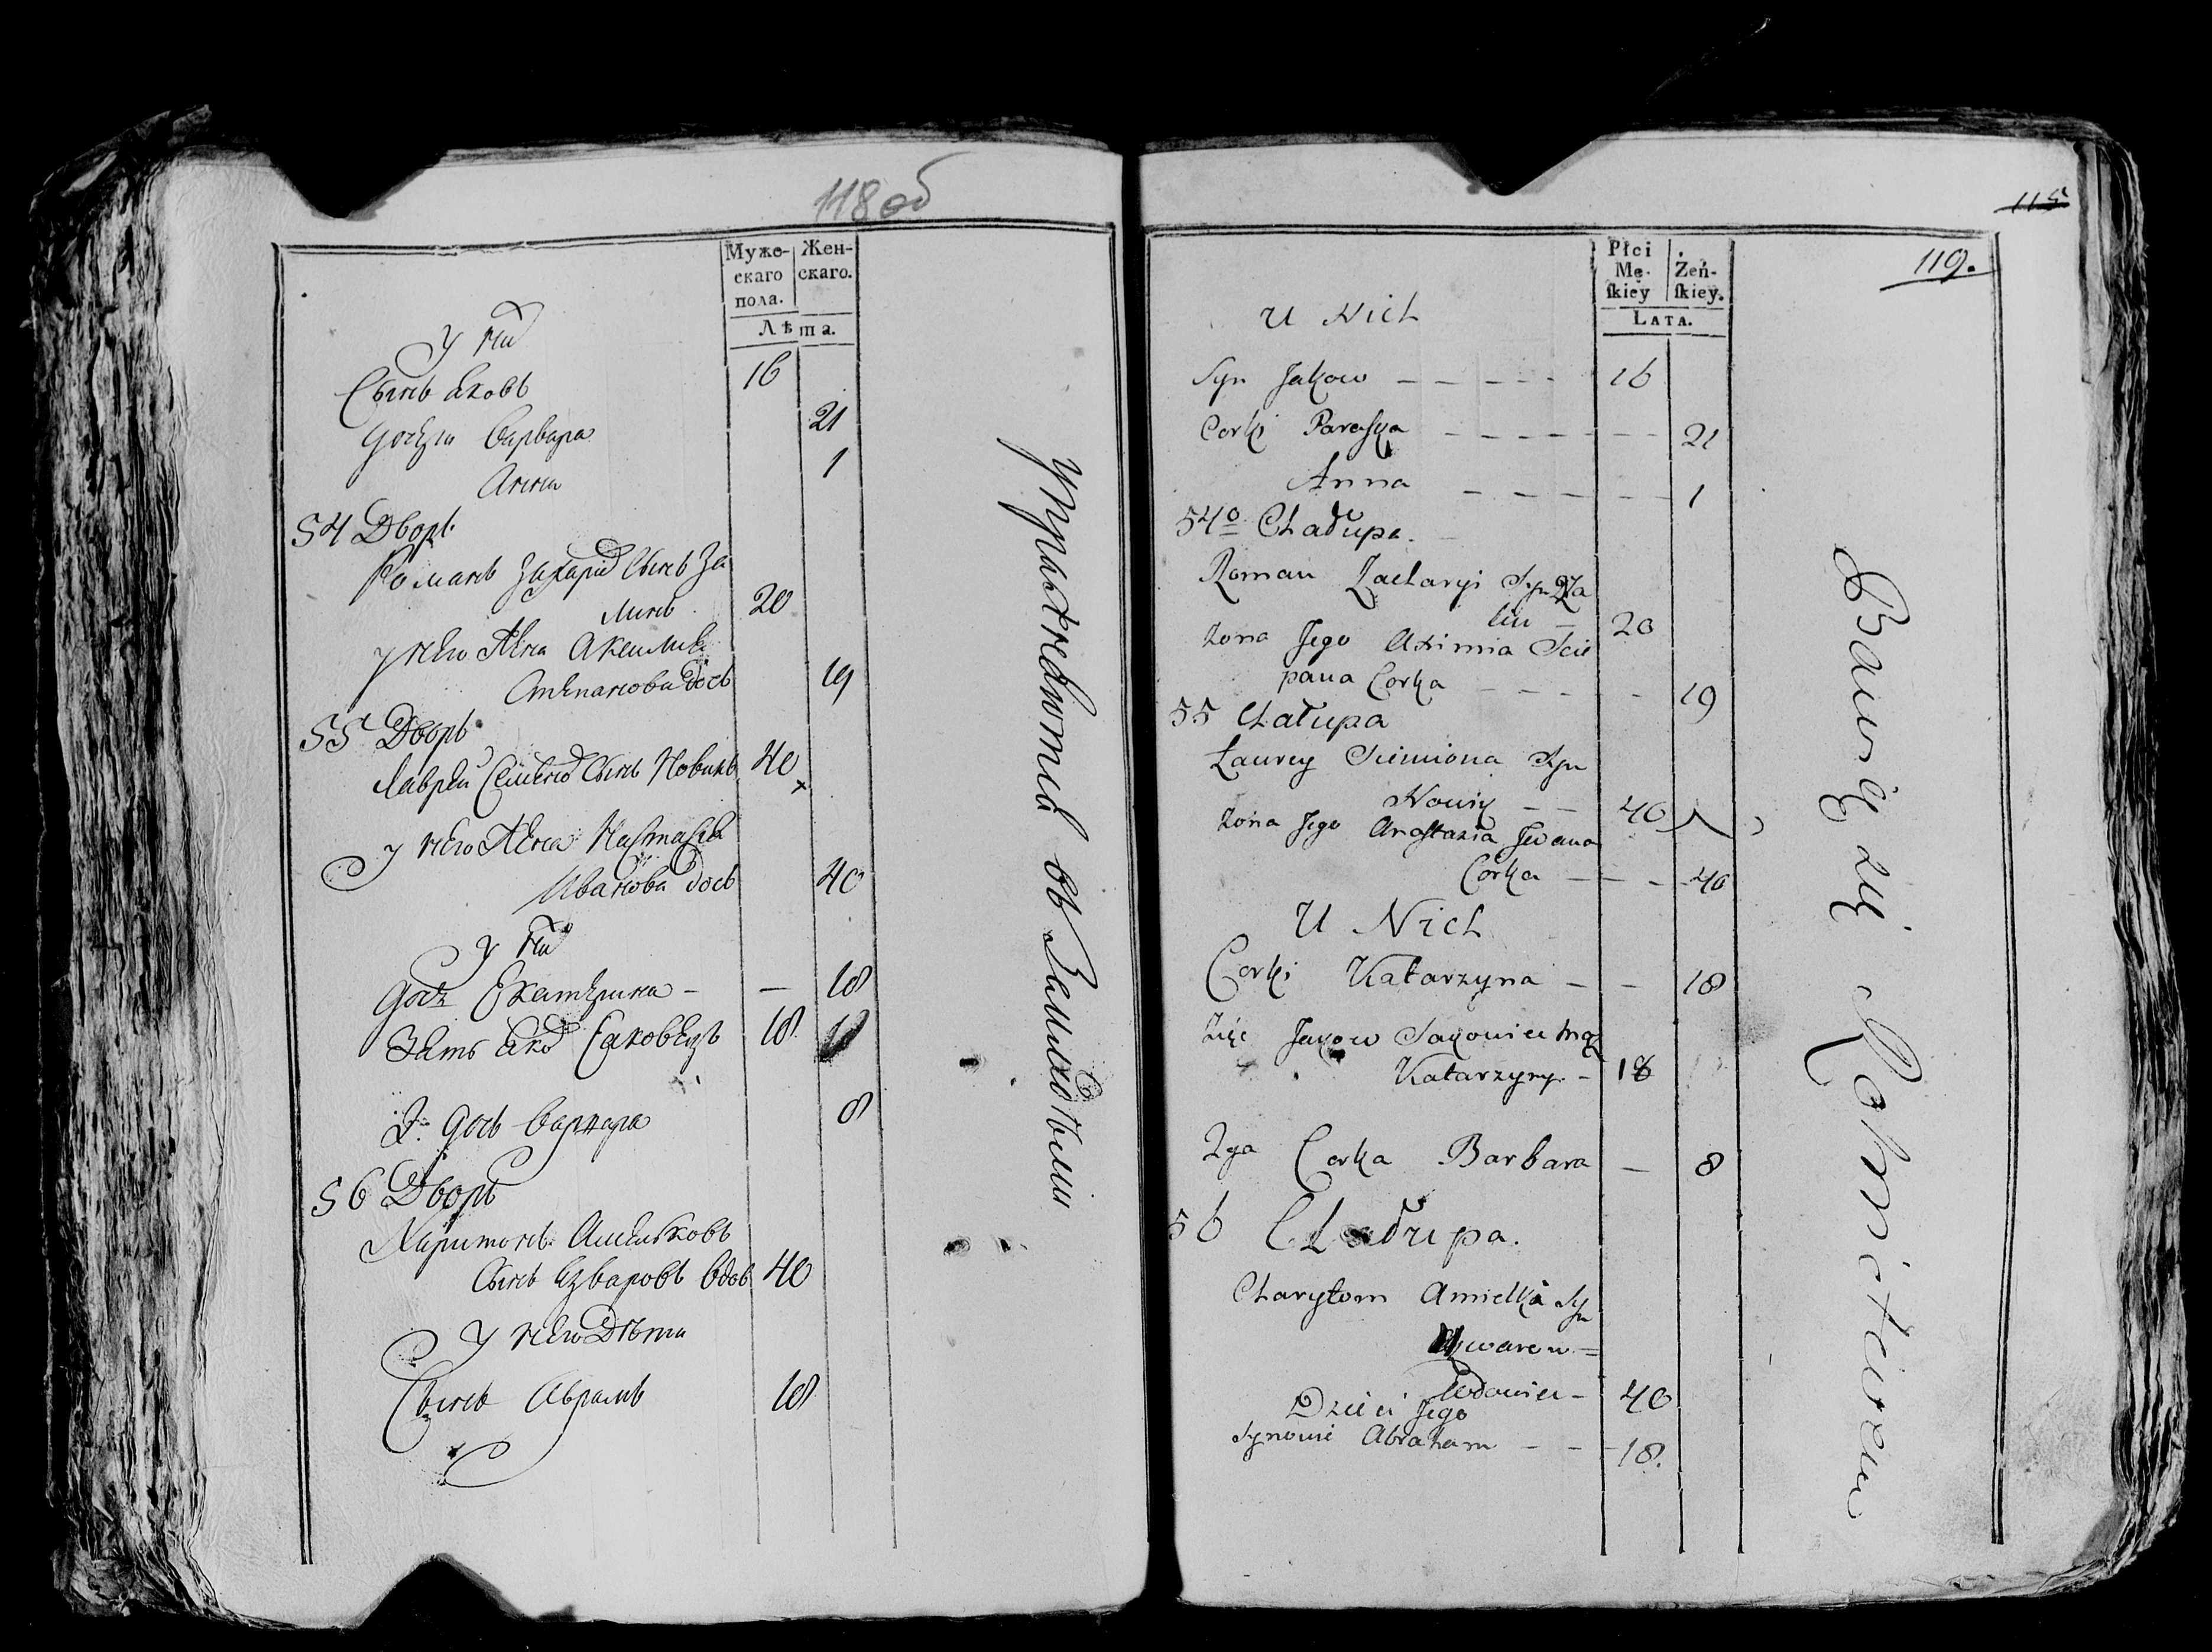 118 об
Муже-
скаго
пола.
Жен-
скаго.
Лѣта.
У них
Сынъ Яковъ 16
Дочери Варвара 21
Анна 1
54 Дворъ
Романъ Захария Сынъ За
линъ 20
У него Жена Аксимия
Степанова дочь 19
55 Дворъ
Лаврен Семена Сынъ Новикъ 40
У него Жена Настасия
Иванова дочь 40
У них
дочь Екатерина - — 18
Зять Яков Саковецъ 18
2я дочь Варвара 8
56 Дворъ
Харитонъ Амельковъ
Сынъ Язваровъ вдов 40
У него Дѣти
Сынъ Абрамъ 18
упражняются въ Земледѣлии
115
119.
Płci
Mę-
ſkiey
Żeń-
ſkiey.
LATA.
U Nich
Syn Jakow — — — — — 16
Corki Paraska — — — — — — — 21
Anna — — — — — — 1
54o Chałupa.
Roman Zacharyi Syn Za
lin — 20
Żona Jego Aximia Scie
pana Corka — — — - 19
55 Chałupa
Ławrey Siemiona Syn
Nowik — — 40
Żona Jego Anastazia Jwana
Corka — — - 40
U Nich
Corki Katarzyna — - 18
Zięć Jakow Sakowiec mąż
Katarzyny. - 18
2ga Corka Barbara — 8
56 Chałupa.
Charyton Amielka Syn
Wdowiec - 40
Dzieci Jego
Synowie Abraham — — 18.
Bawię się Rolnictwem